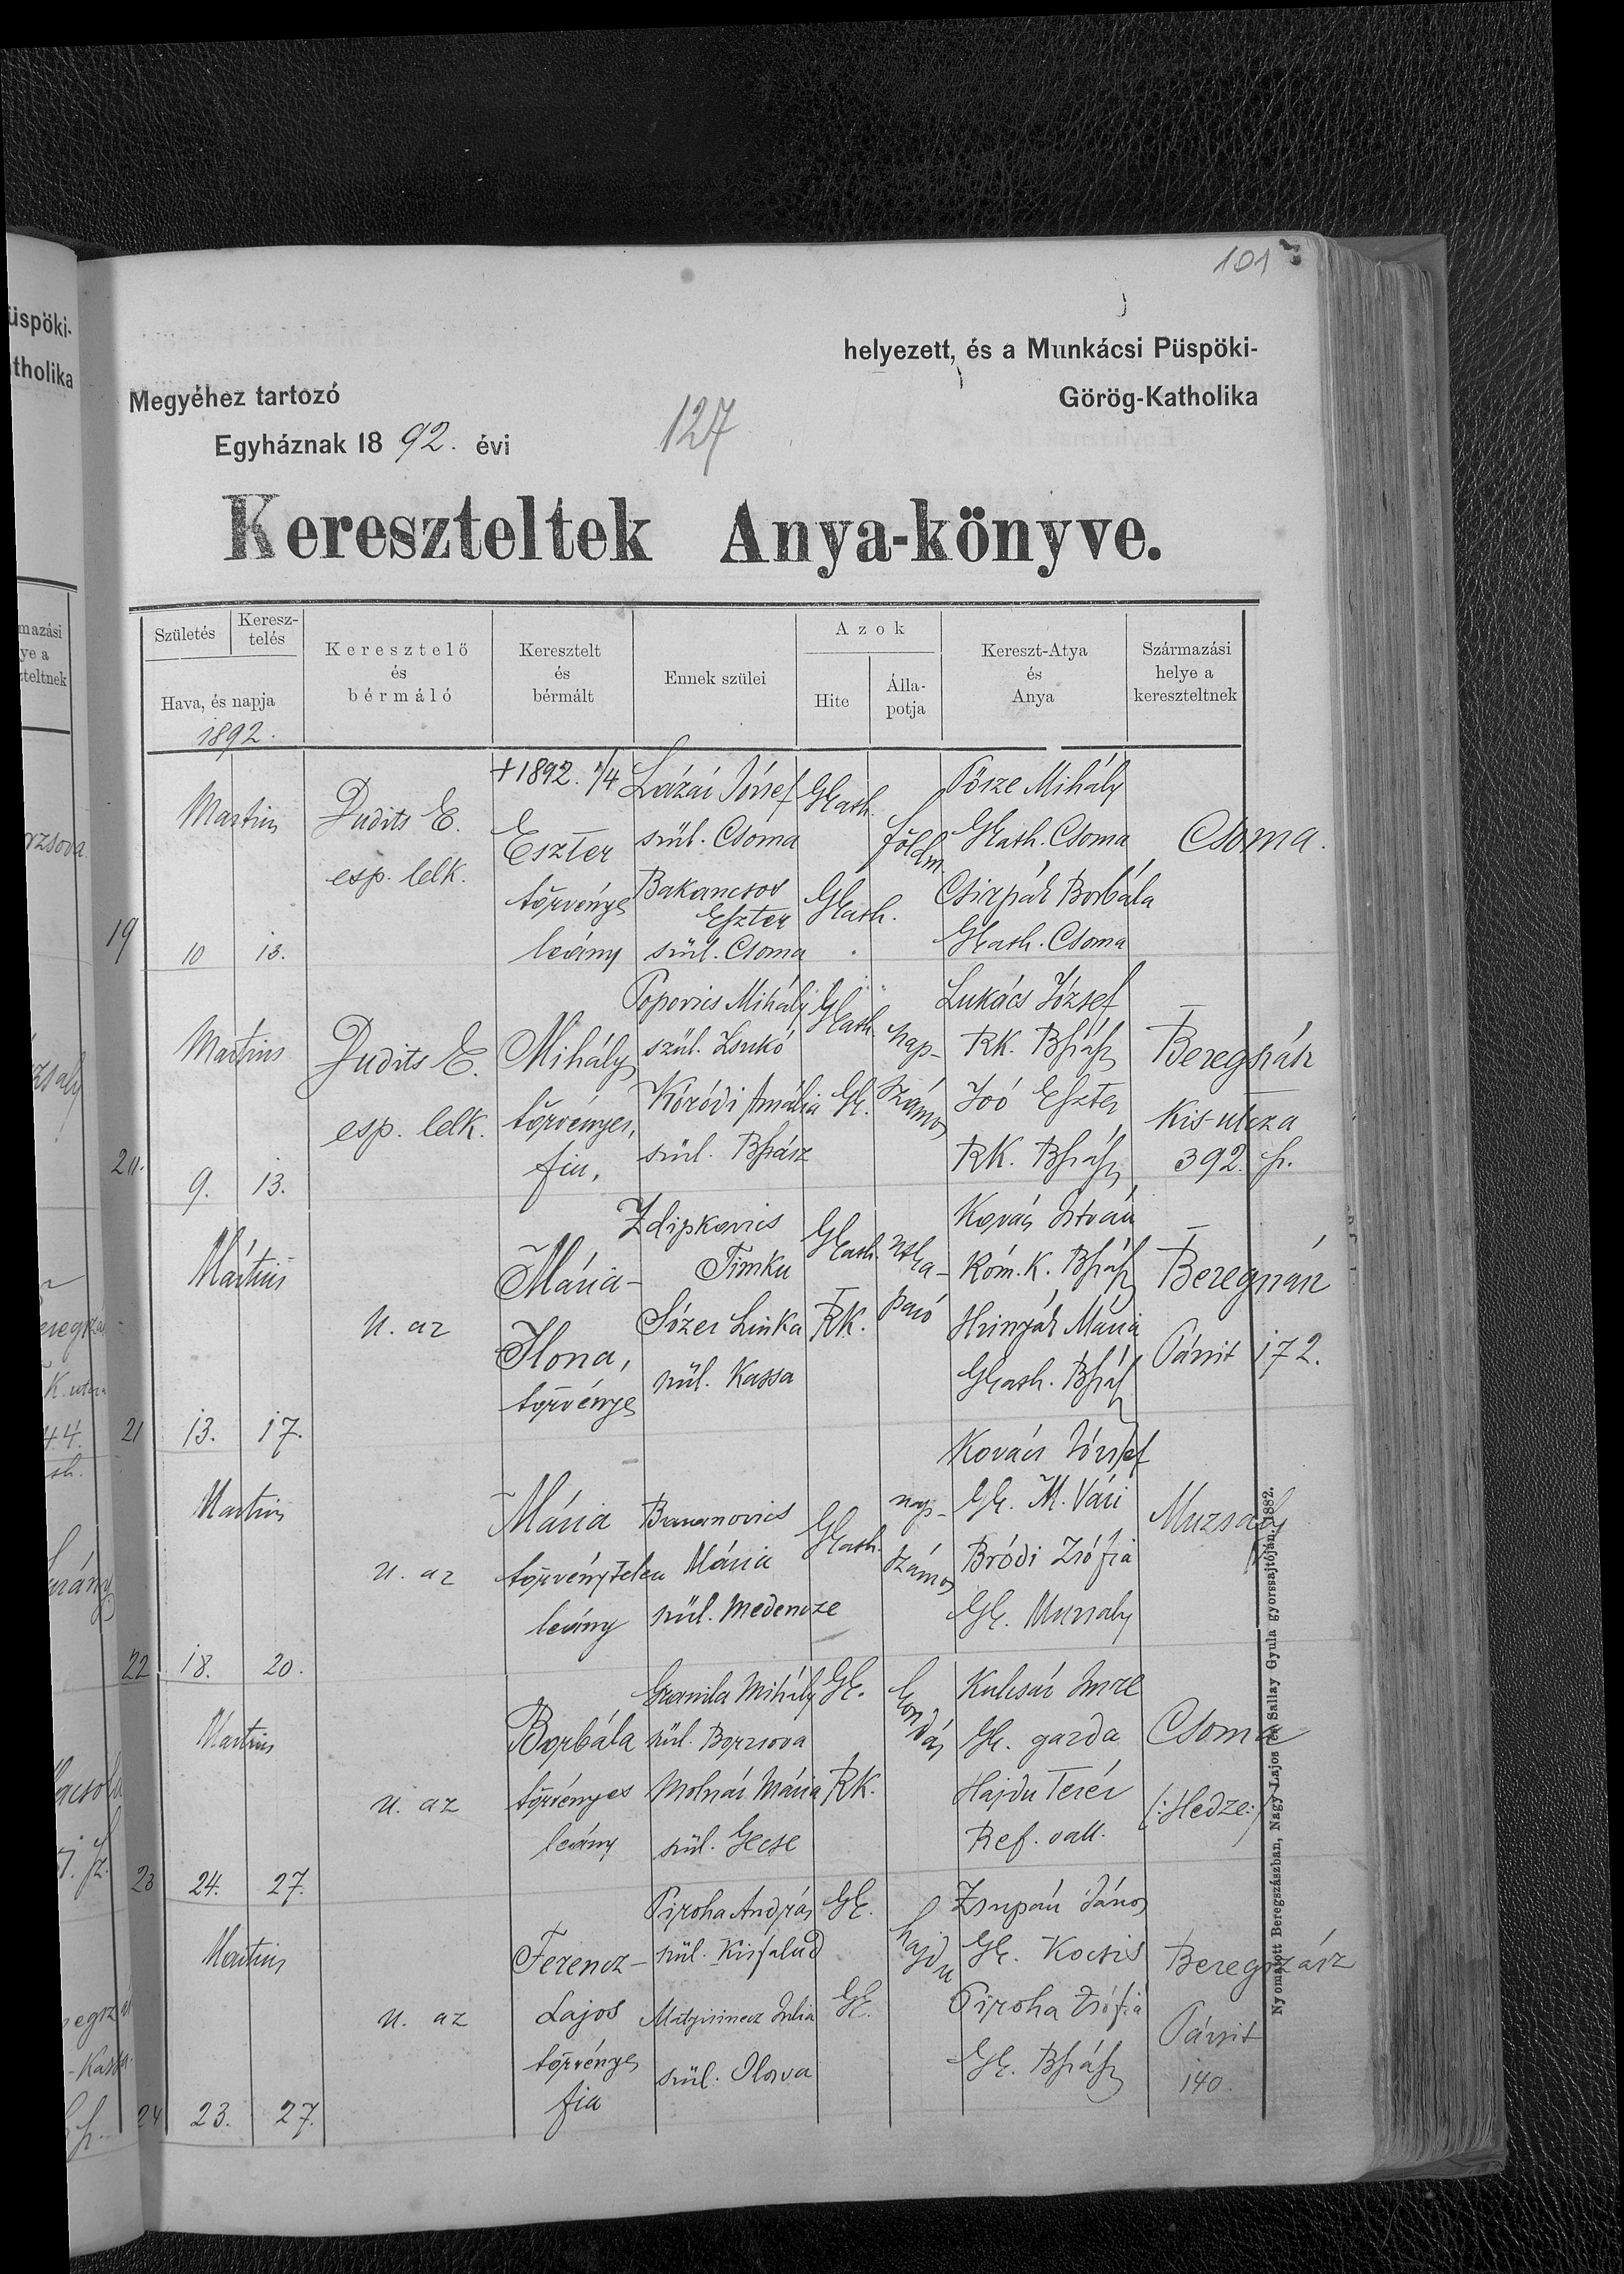 101
üspöki-
tholika
helyezett, és a Munkácsi Püspöki-
Megyéhez tartozó
Görög-Katholika
Egyháznak 1892. évi
127
Kereszteltek Anya-könyve.
Születés
Keresz-
telés
Hava, és napja
1892.
Keresztelő
és
bérmáló
Keresztelt
és
bérmált
Ennek szülei
Azok
Hite
Álla-
potja
Kereszt-Atya
és
Anya
Származási
helye a
kereszteltnek
19
Martius
10 13.
Dudits E.
esp. lelk.
+1892. 1/4
Eszter
törvényes
leány
Lázár József
szül. Csoma
Bakancsos
Eszter
szül. Csoma
GKath.
GKath.
földm.
Pősze Mihály
GKath. Csoma
Csirpák Borbála
GKath. Csoma
Csoma.
20.
Martius
9. 13.
Dudits E.
esp. lelk.
Mihály
törvényes,
fiu,
Popovics Mihály
szül. Zsukó
Kóródi Amália
szül. Bszász
GKath.
GK.
nap-
számos
Lukács József
RK. Bszász
Joó Eszter
RK. Bszász
Beregszász
Kis-utcza
392. sz.
21
Mártius
13. 17.
U. az
Mária-
Ilona,
törvényes
Zdipkovics
Timku
Sózer Linka
szül. Kassa
GKath.
RK.
Kovács István
Róm. K. Bszász
Hrinyák Mária
GKath. Bszász
Beregszász
Párvit 172.
22
Martius
18. 20.
U. az
Mária
törvénytelen
leány
Mária
szül. Medencze
GKath.
nap-
számos
Kovács József
GK. M. Vári
Bródi Zsófia
GK. Muzsaly
Muzsaly
23
Martius
24. 27.
U. az
Borbála
törvényes
leány
Mihály
szül. Borzsova
Molnár Mária
szül. Gecse
GK.
RK.
kondás
Kulcsár Imre
GK. gazda
Hajdu Teréz
Ref. vall.
Csoma
(:Hedze:)
24
Martius
23. 27.
U. az
Ferencz-
Lajos
törvényes
fia
Piroha András
szül. Kisfalud
Julia
szül. Ilosva
GK.
GK.
hajdu
Zsupán János
GK. Kocsis
Piroha Zsófia
GK. Bszász
Beregszász
Párvit
140.
Nyomatott Beregszászban, Nagy Lajos és Sallay Gyula gyorssajtóján. 1882.